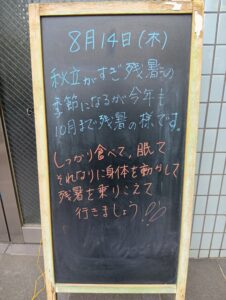 8月14日(木)
秋立がすぎ残暑の
季節になるが今年も
10月まで残暑の様です。
しっかり食べて、眠して
それなりに身体を動かして
残暑を乗りこえて
行きましょう!!